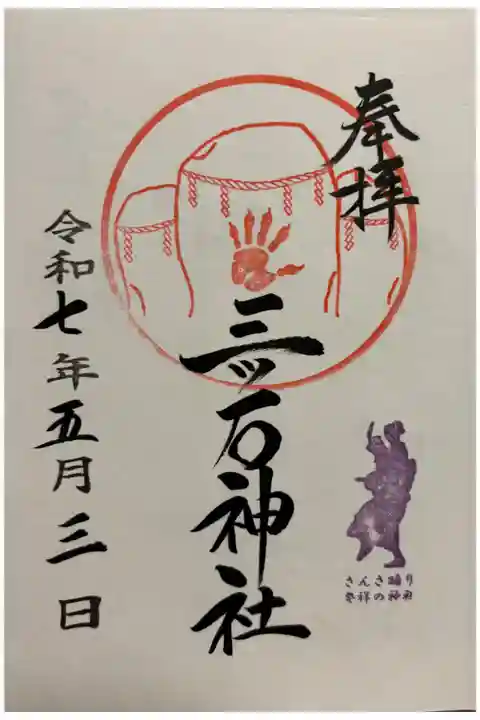 奉拝
三ッ石神社
令和七年五月三日
さんさ踊り
発祥の神社